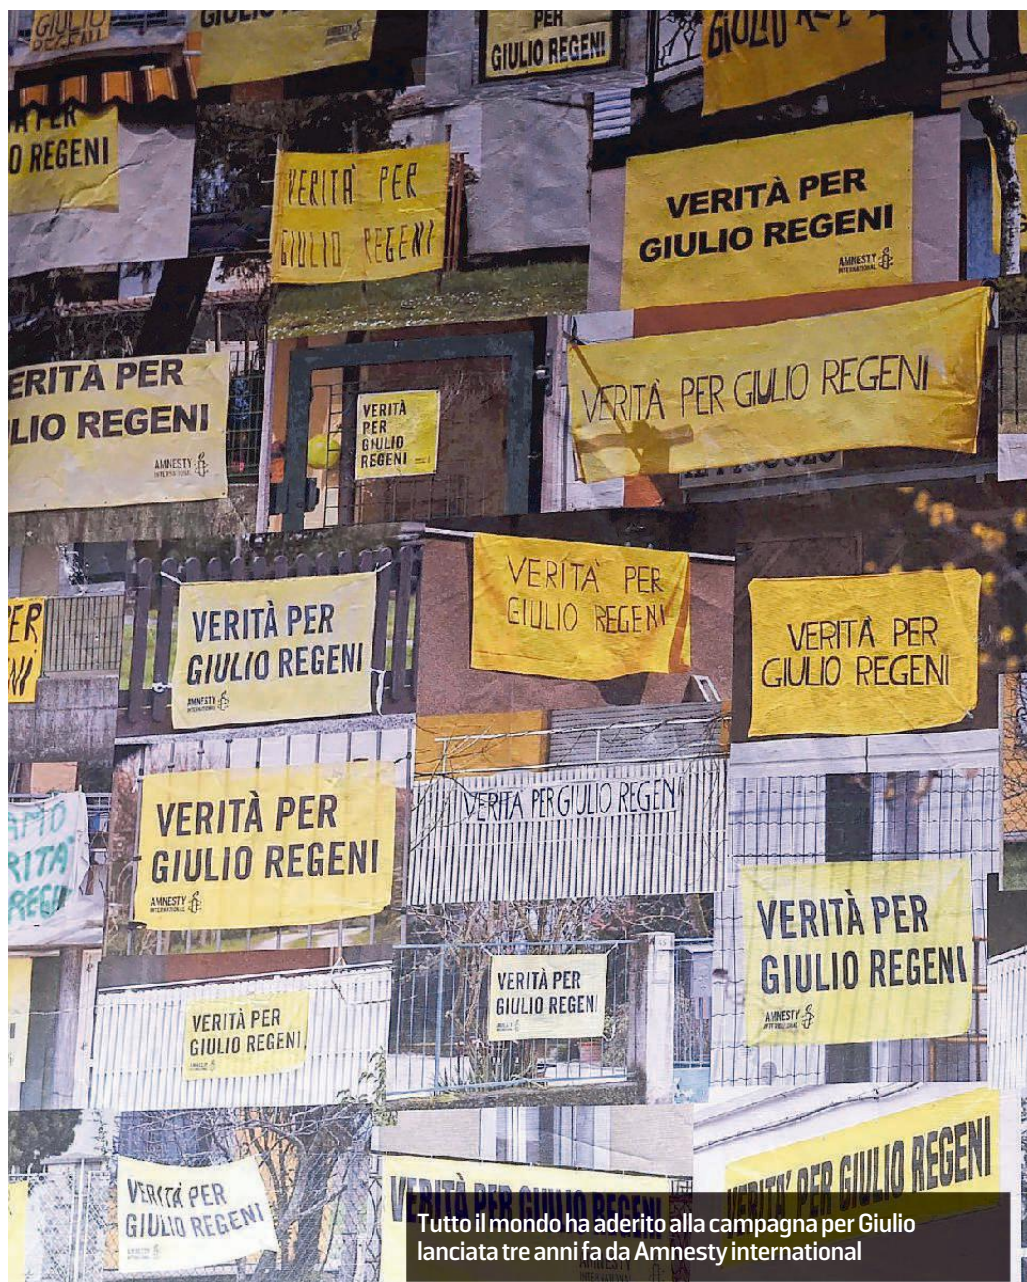 GIULIO
REGENI
GIULIO
PER
GIULIO REGENI
GIULIO
PER
REGENI
VERITÀ PER
GIULIO REGENI
VERITÀ PER
GIULIO REGENI
AMNESTY
INTERNATIONAL
ERITÀ PER
LIO REGENI
AMNESTY
INTERNATIONAL
VERITÀ
PER
GIULIO
REGENI
VERITA' PER GIULIO REGENI
IL PICCOLO
ER
NI
VERITÀ PER
GIULIO REGENI
AMNESTY
INTERNATIONAL
VERITA' PER
GIULIO REGENI
VERITÀ PER
GIULIO REGENI
AMO
RITA'
REGE
VERITÀ PER
GIULIO REGENI
AMNESTY
INTERNATIONAL
VERITA PER GIULIO REGENI
VERITÀ PER
GIULIO REGENI
AMNESTY
INTERNATIONAL
VERITÀ PER
GIULIO REGENI
VERITÀ PER
GIULIO REGENI
VERITÀ PER
GIULIO REGENI
VERITÀ PER GIULIO REGENI
VERITA' PER GIULIO REGENI
Tutto il mondo ha aderito alla campagna per Giulio
lanciata tre anni fa da Amnesty international